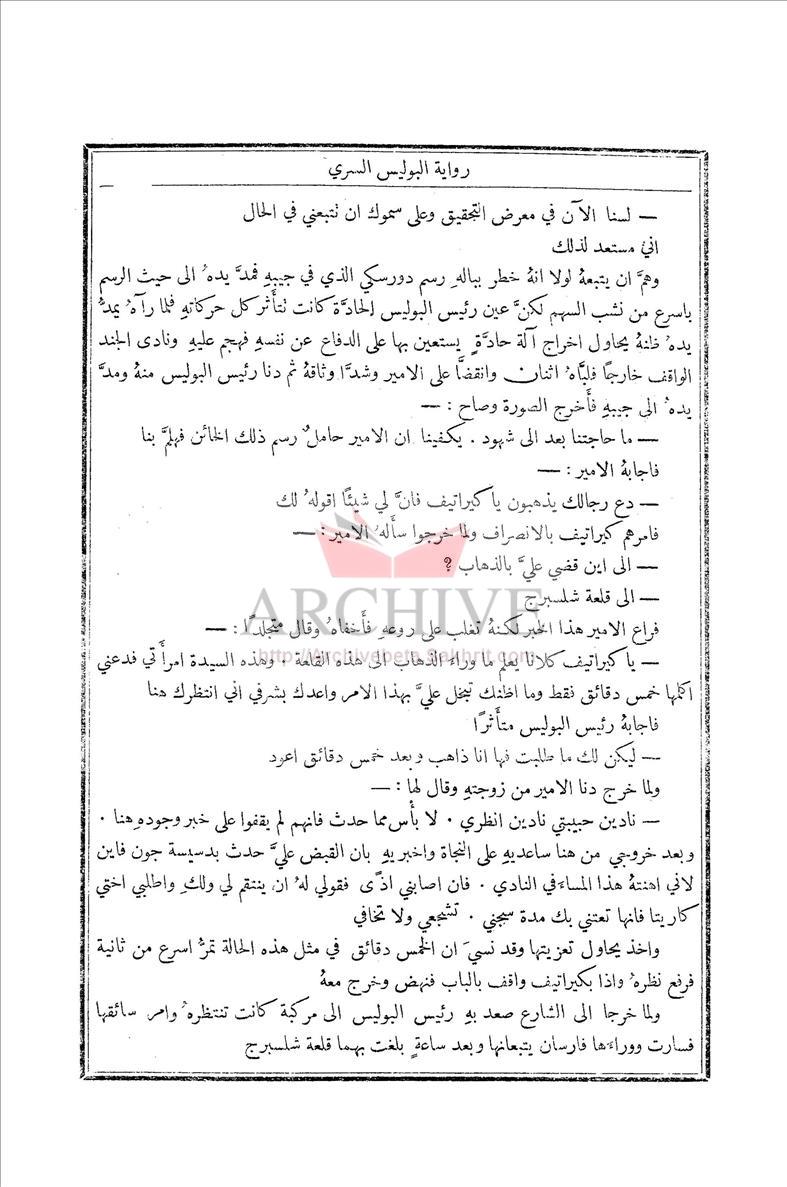 رواية البوليس السري
— لسنا الآن في معرض التحقيق وعلى سموك ان تتبعني في الحال
اني مستعد لذلك
وهمَّ ان يتبعهُ لولا انهُ خطر ببالهِ رسم دورسكي الذي في جيبهِ فمدَّ يدهُ الى حيث الرسم
باسرع من نشب السهم لكنَّ عين رئيس البوليس الحادَّة كانت تتأثر كل حركاتهِ فلما رآهُ يمدُّ
يدهُ ظنهُ يحاول اخراج آلة حادَّةٍ يستعين بها على الدفاع عن نفسهِ فهجم عليهِ ونادى الجند
الواقف خارجًا فلبَّاهُ اثنان وانقضَّا على الامير وشدَّا وثاقهُ ثم دنا رئيس البوليس منهُ ومدَّ
يدهُ الى جيبهِ فأخرج الصورة وصاح : —
— ما حاجتنا بعد الى شهود . يكفينا ان الامير حاملٌ رسم ذلك الخائن فهلمَّ بنا
فاجابهُ الامير : —
— دع رجالك يذهبون يا كيراتيف فانَّ لي شيئًا اقولهُ لك
فامرهم كيراتيف بالانصراف ولما خرجوا سألهُ الامير : —
— الى اين قضي عليَّ بالذهاب ؟
— الى قلعة شلسبرج
فراع الامير هذا الخبر لكنهُ تغلب على روعهِ فأخفاهُ وقال متجلدًا : —
— يا كيراتيف كلانا يعلم ما وراءَ الذهاب الى هذه القلعة . وهذه السيدة امرأتي فدعني
اكلمها خمس دقائق فقط وما اظنك تبخل عليَّ بهذا الامر واعدك بشرفي اني انتظرك هنا
فاجابهُ رئيس البوليس متأثرًا
— ليكن لك ما طلبت فها انا ذاهب وبعد خمس دقائق اعود
ولما خرج دنا الامير من زوجتهِ وقال لها : —
— نادين حبيبتي نادين انظري . لا بأس مما حدث فانهم لم يقفوا على خبر وجودهِ هنا .
وبعد خروجي من هنا ساعديهِ على النجاة واخبريهِ بان القبض عليَّ حدث بدسيسة جون فاين
لاني اهنتهُ هذا المساء في النادي . فان اصابني اذًى فقولي لهُ ان ينتقم لي ولكِ واطلبي اختي
كاريتا فانها تعتني بك مدة سجني . تشجعي ولا تخافي
واخذ يحاول تعزيتها وقد نسيَ ان الخمس دقائق في مثل هذه الحالة تمرُّ اسرع من ثانية
فرفع نظرهُ واذا بكيراتيف واقف بالباب فنهض وخرج معهُ
ولما خرجا الى الشارع صعد بهِ رئيس البوليس الى مركبة كانت تنتظرهُ وامر سائقها
فسارت ووراءَها فارسان يتبعانها وبعد ساعةٍ بلغت بهما قلعة شلسبرج
ARCHIVE
http://Archivebeta.Sakhrit.com